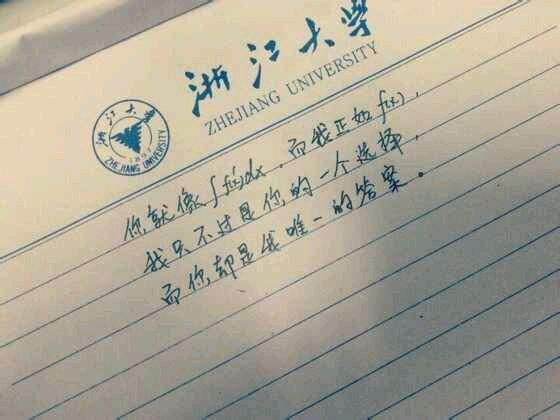 浙江大学
ZHEJIANG UNIVERSITY
浙江大学
1897
ZHEJIANG UNIVERSITY
你就像∫f(x)dx，而我正如f(x)，
我只不过是你的一个选择，
而你却是我唯一的答案。